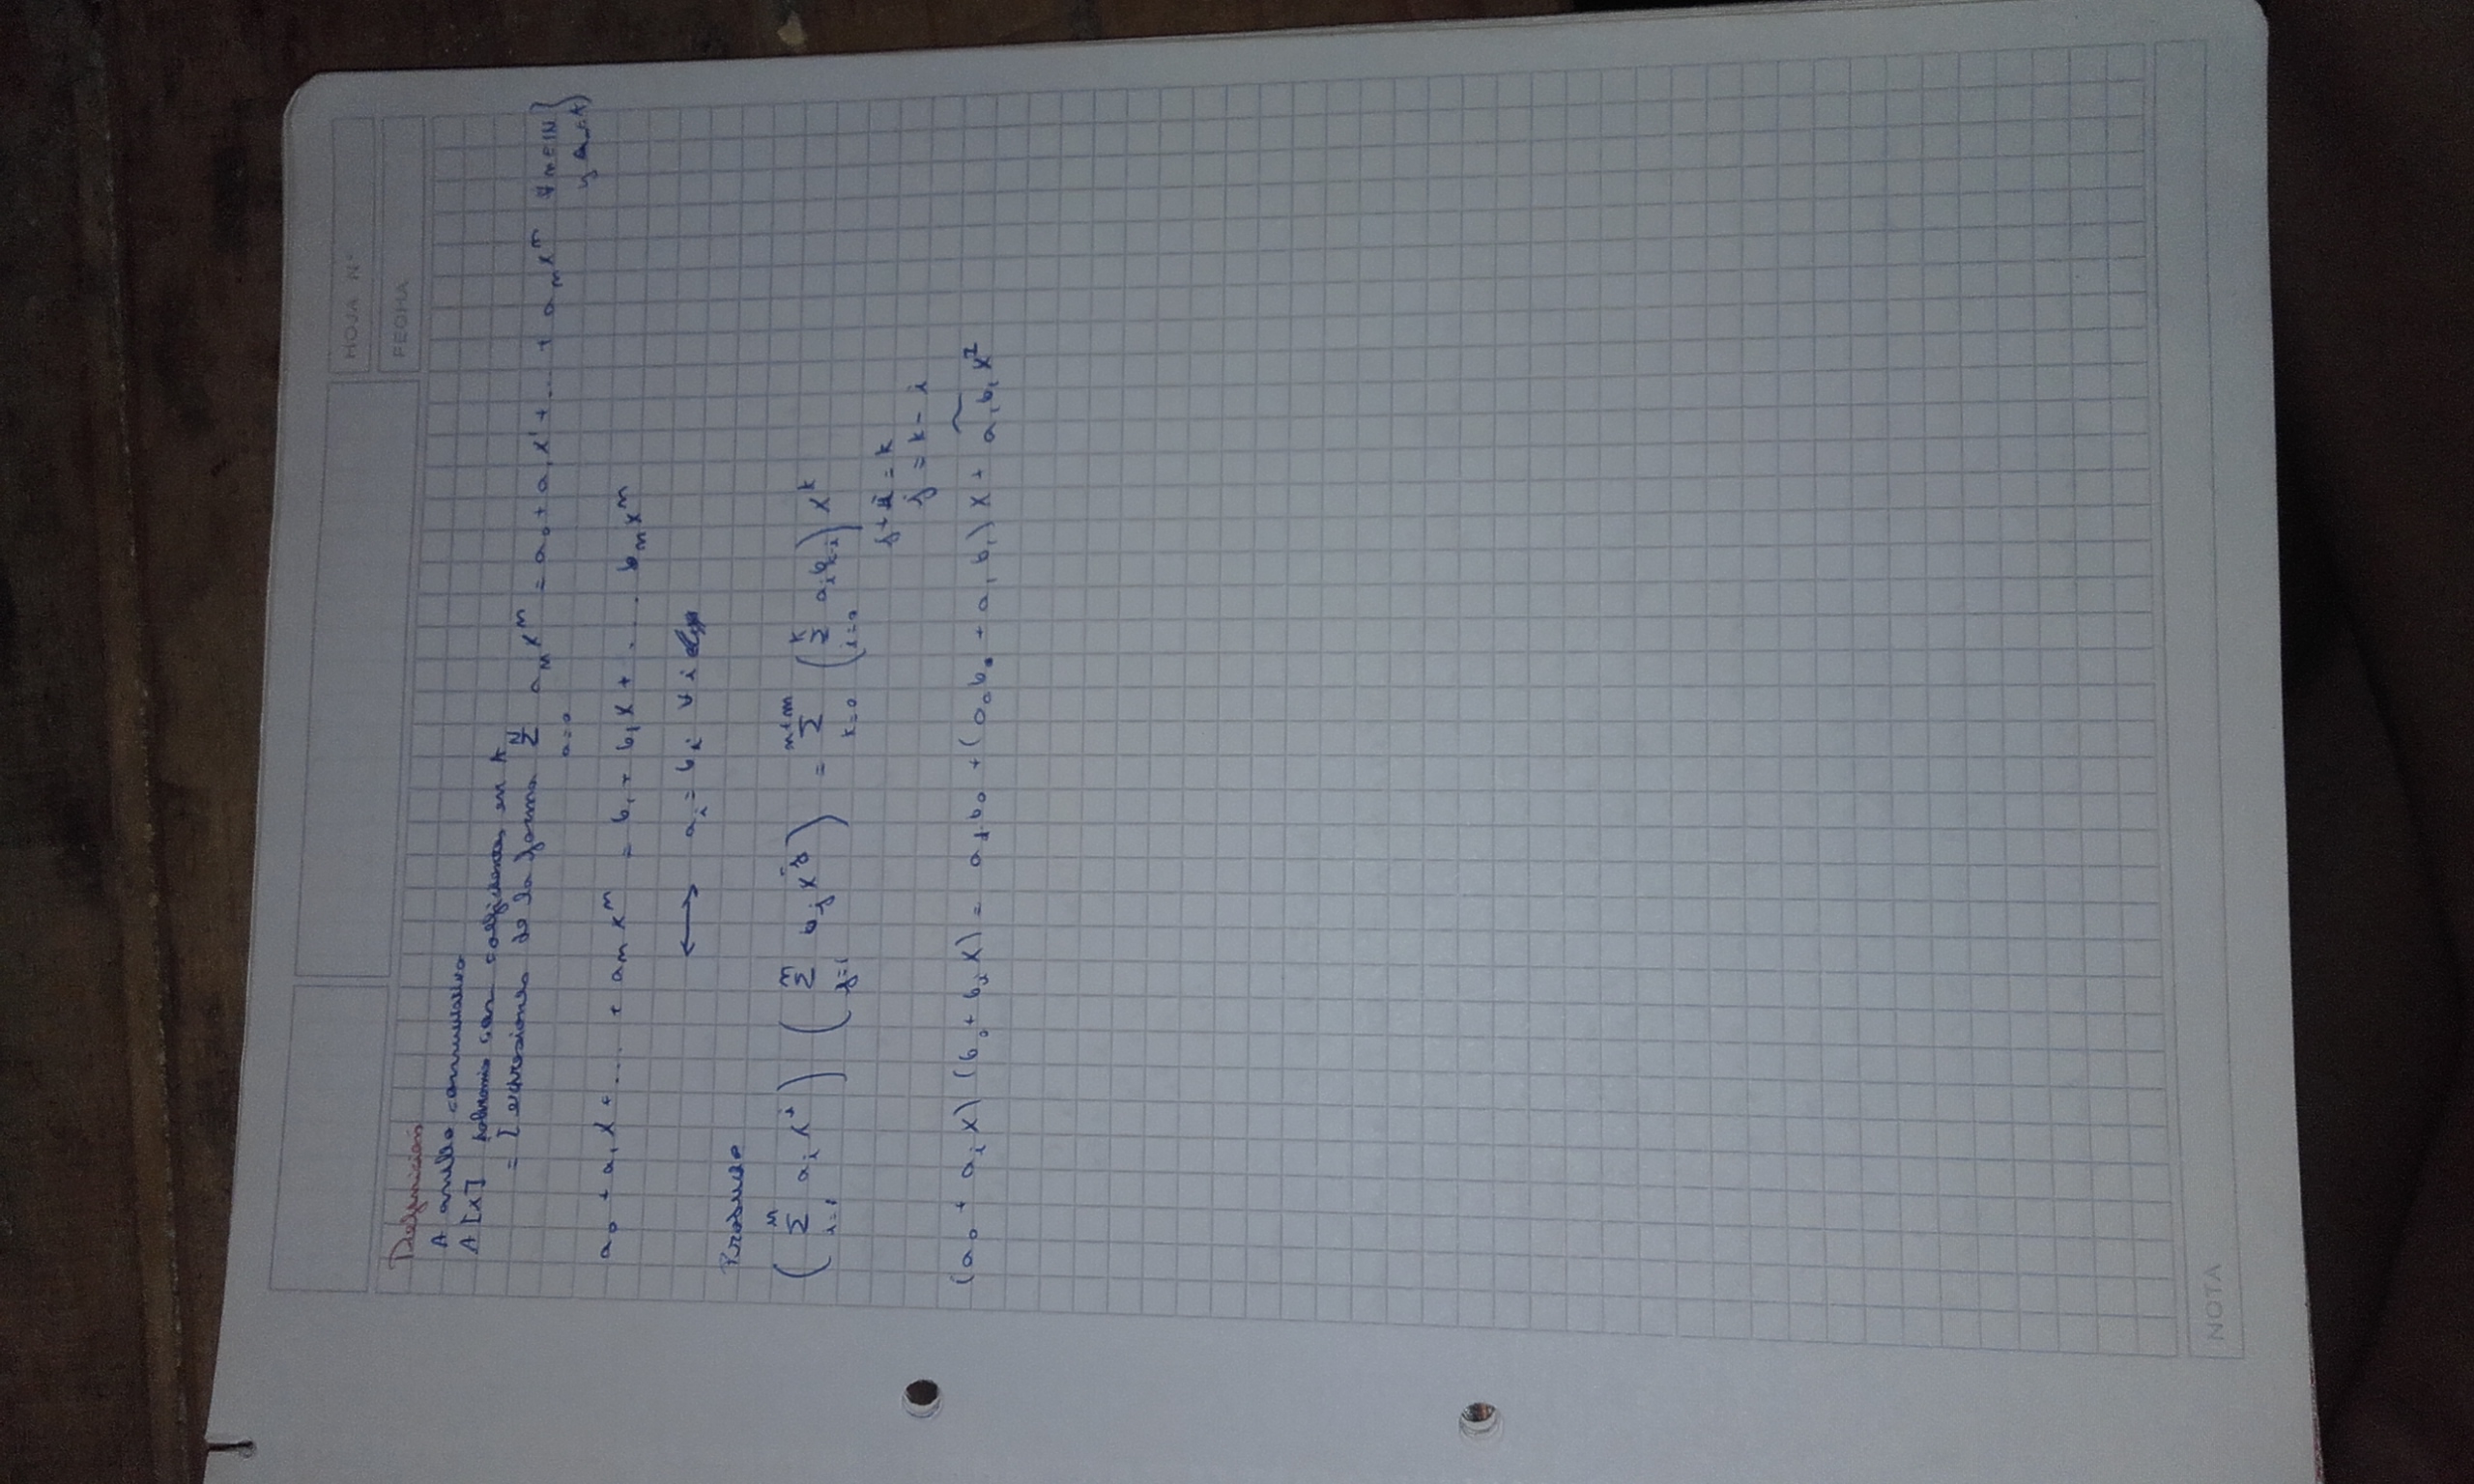 HOJA Nº
FECHA
Definicion
A anillo conmutativo
A[x] polinomio con coeficientes en A
= { expresiones de la forma N Σ n=0 a_n x^n = a_0 + a_1 x^1 + ... + a_n x^n ∀ n ∈ IN }
y a_n ∈ A
a_0 + a_1 x + ... + a_n x^n = b_1 + b_1 x + .... b_n x^n
⟷ a_i = b_i ∀ i
Producto
( n Σ i=1 a_i x^i ) ( m Σ j=1 b_j x^j ) = n+m Σ k=0 ( k Σ i=0 a_i b_{k-i} ) x^k
j + i = k
j = k - i
(a_0 + a_i x) (b_0 + b_i x) = a_1 b_0 + (a_0 b_0 + a_1 b_1) x + a_1 b_1 x^2
NOTA